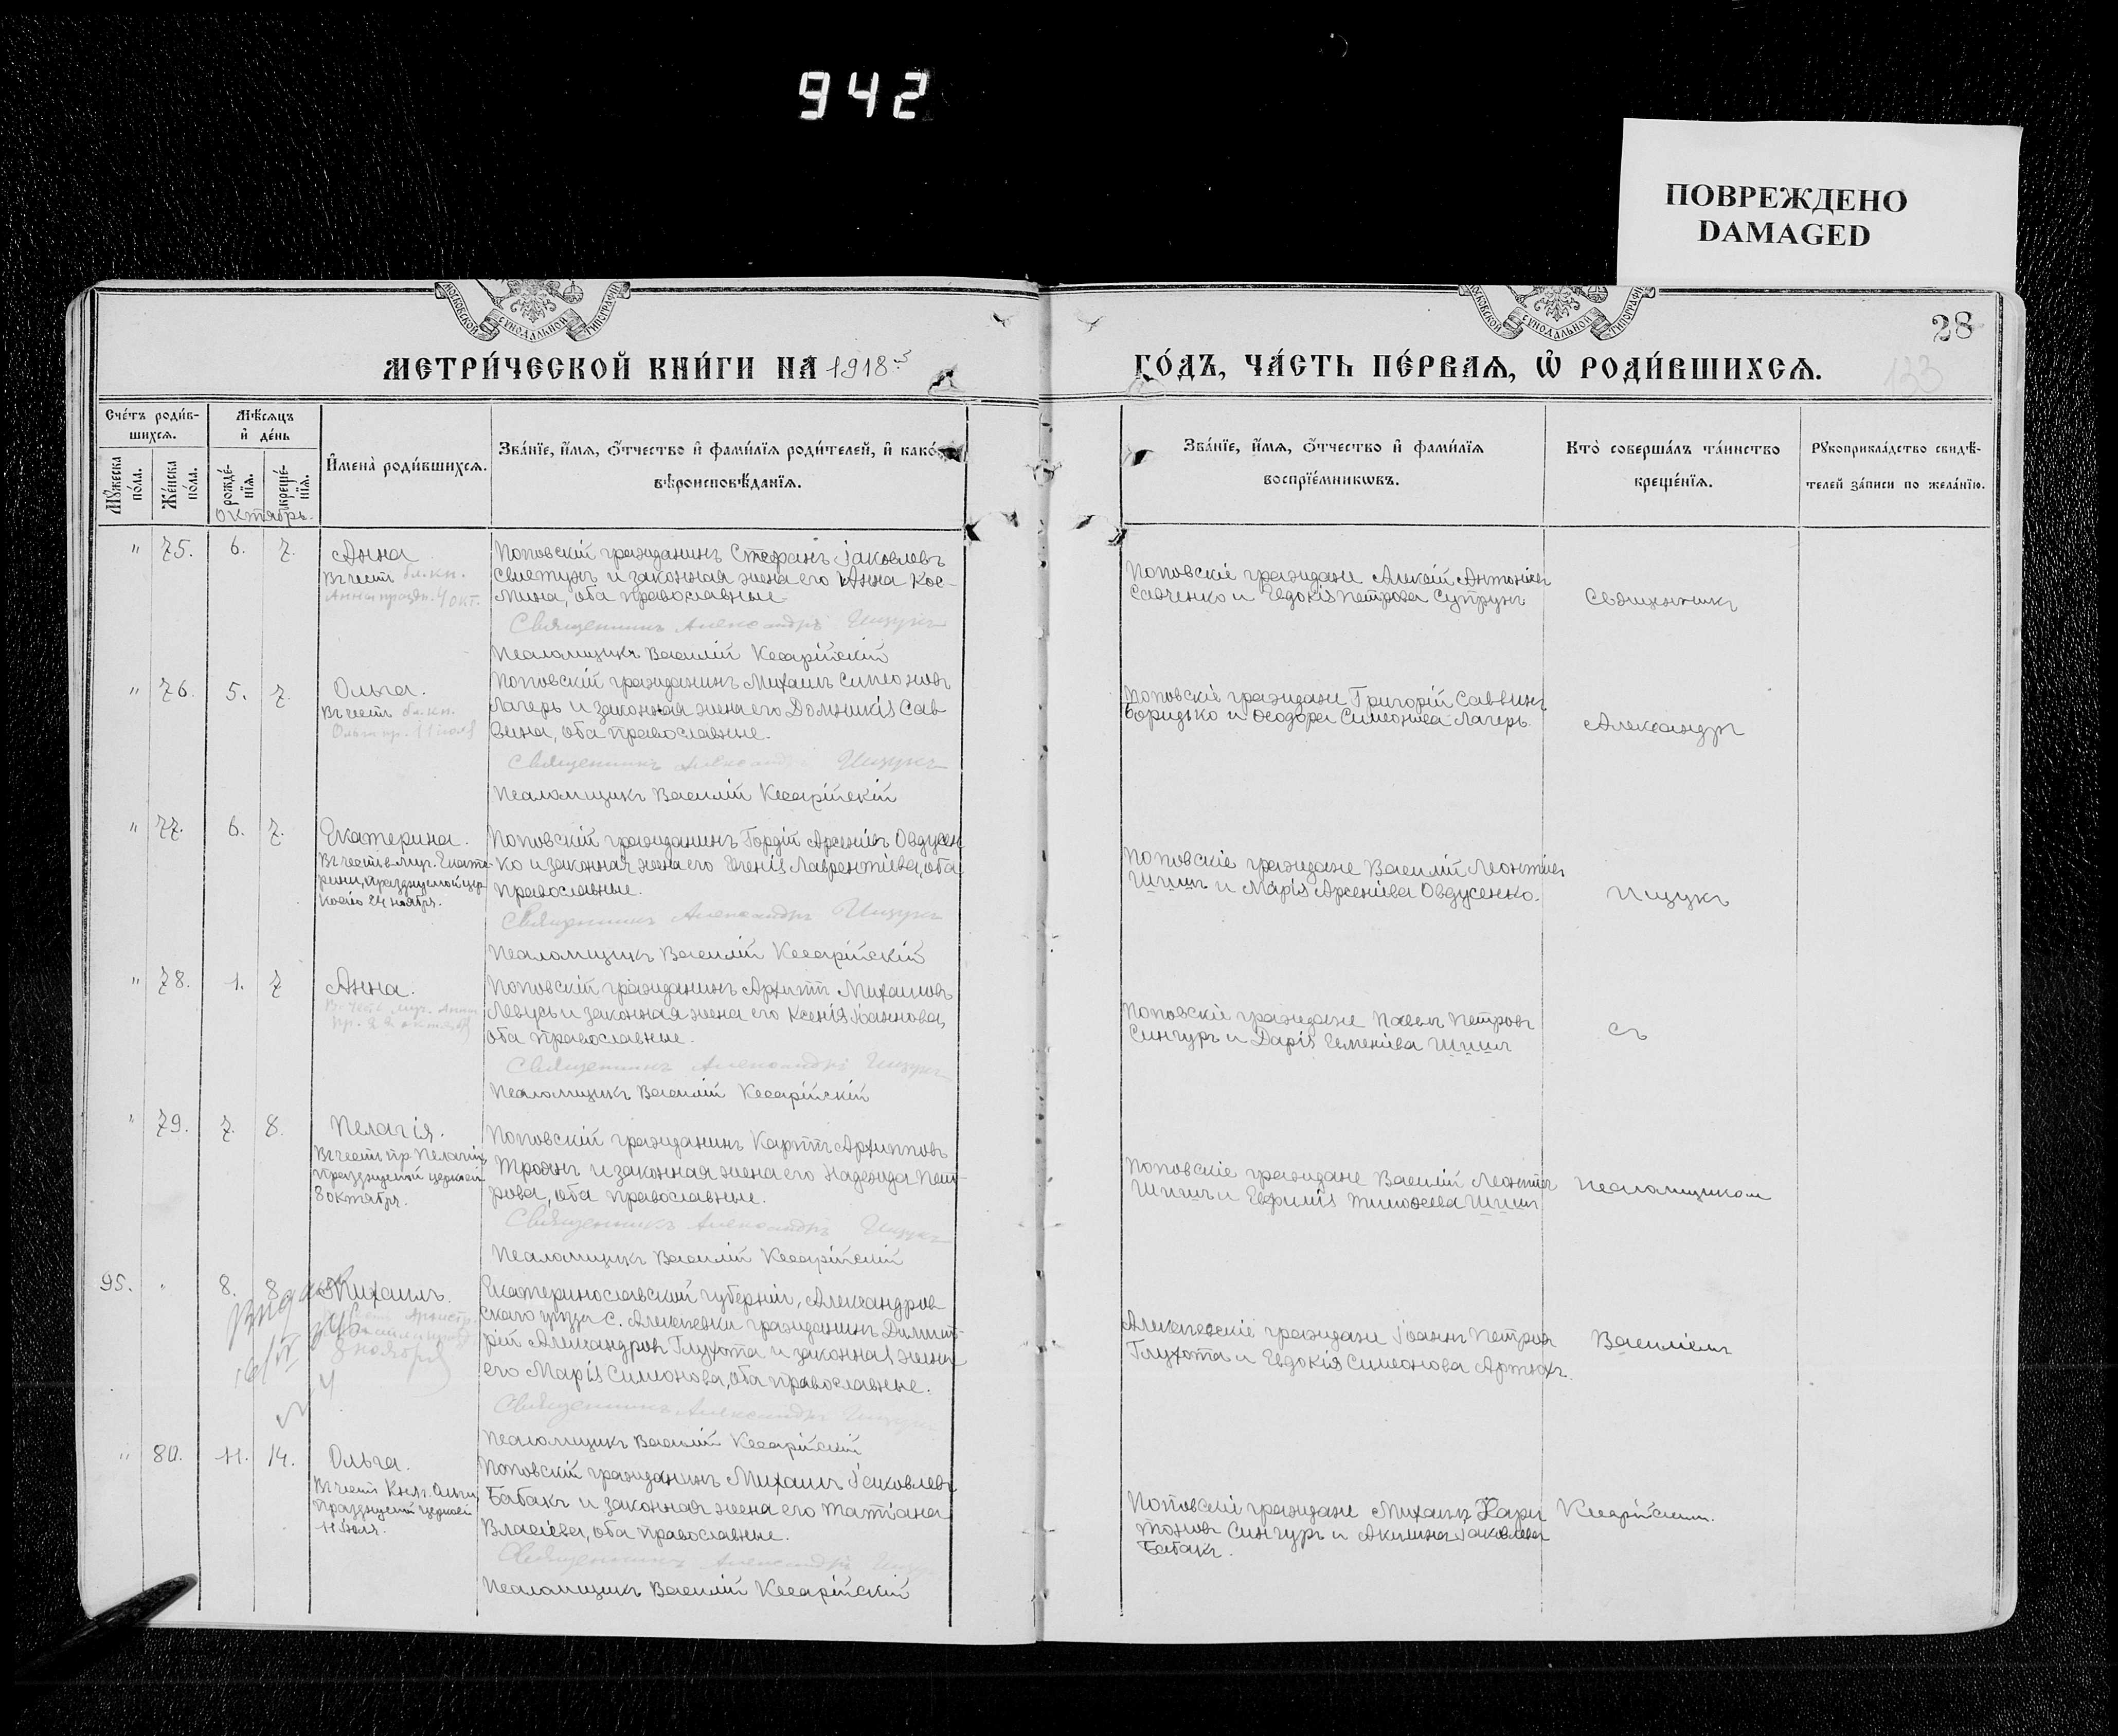 942
ПОВРЕЖДЕНО
DAMAGED
МОСКОВСКОЙ СѴНОДАЛЬНОЙ ТИПОГРАФІИ
МОСКОВСКОЙ СѴНОДАЛЬНОЙ ТИПОГРАФІИ
28
133
МЕТРИ́ЧЕСКОЙ КНИ́ГИ НА 1918
ГО́ДЪ, ЧА́СТЬ ПЕ́РВАѦ, Ѡ҆ РОДИ́ВШИХСѦ.
Сче́тъ роди́в-
шихсѧ.
Мѣ́сѧцъ
и҆ де́нь
Мꙋ́жеска по́ла.
Же́нска по́ла.
рожде́-
нїѧ.
креще́-
нїѧ.
октябрь.
И҆мена̀ роди́вшихсѧ.
Зва́нїе, и҆́мѧ, ѻ҆́тчество и҆ фами́лїѧ роди́телей, и҆ како́
вѣроисповѣ́данїѧ.
Зва́нїе, и҆́мѧ, ѻ҆́тчество и҆ фами́лїѧ
воспрїе́мникѡвъ.
Кто̀ соверша́лъ та́инство
креще́нїѧ.
Рꙋкоприкла́дство свидѣ́-
телей за́писи по жела́нїю.
" 75. 6. 7. Анна
Въ честь бл. кн.
Анны праздн. 4 окт.
Поповскій гражданинъ Стефанъ Іаковлевъ
Свистунъ и законная жена его Анна Кос-
мина, оба православные
Священникъ Александръ Ищукъ
Псаломщикъ Василій Кесарійскій
Поповскіе граждане Алексій Антоніевъ
Савченко и Евдокія Петрова Супрунъ
Священникъ
" 76. 5. 7. Ольга.
Въ честь бл. кн.
Ольги пр. 11 іюля
Поповскій гражданинъ Михаилъ Симеоновъ
Лагерь и законная жена его Домникія Сав
вина, оба православные.
Священникъ Александръ Ищукъ
Псаломщикъ Василій Кесарійскій
Поповскіе граждане Григорій Саввинъ
и Ѳеодора Симеонова Лагерь.
Александръ
" 77. 6. 7. Екатерина.
Въ честь в. муч. Екате-
рины, празднуемой цер-
ковію 24 ноября.
Поповскій гражданинъ Гордій Арсеніевъ Овдусен
ко и законная жена его Лаврентіева, оба
православные.
Священникъ Александръ Ищукъ
Псаломщикъ Василій Кесарійскій
Поповскіе граждане Василій Леонтіевъ
Шишъ и Марія Арсеніева Овдусенко.
Ищукъ
" 78. 1. 7 Анна.
Въ честь муч. Анны
пр. 22 октября
Поповскій гражданинъ Архиппъ Михаиловъ
Левусь и законная жена его Ксенія Іоаннова,
оба православные.
Священникъ Александръ Ищукъ
Псаломщикъ Василій Кесарійскій
Поповскіе граждане Павелъ Петровъ
Сингуръ и Дарія Шишъ
съ
" 79. 7. 8. Пелагія.
Въ честь пр. Пелагіи,
празднуемой церковію
8 октября.
Поповскій гражданинъ Карпъ Архипповъ
Троянъ и законная жена его Надежда Пет-
рова, оба православные.
Священникъ Александръ Ищукъ
Псаломщикъ Василій Кесарійскій
Поповскіе граждане Василій Леонтіевъ
Шишъ и Евфимія Тимоѳеева Шишъ
псаломщикомъ
95. " 8. 8. Михаилъ.
8 ноября
Екатеринославской губерніи, Александров
скаго уѣзда с. Алексѣевки гражданинъ Димит-
рій Александровъ Глухота и законная жена
его Марія Симеонова, оба православные.
Священникъ Александръ Ищукъ
Псаломщикъ Василій Кесарійскій
Алексѣевскіе граждане Іоаннъ Петровъ
Глухота и Евдокія Симеонова Артюхъ.
Василіемъ
" 80. 11. 14. Ольга.
Въ честь Княг. Ольги,
празднуемой церковію
11 іюля.
Поповскій гражданинъ Михаилъ Іаковлевъ
Бабакъ и законная жена его Татіана
Власіева, оба православные.
Священникъ Александръ Ищукъ
Псаломщикъ Василій Кесарійскій
Поповскіе граждане Михаилъ Хари
тоновъ Сингуръ и Акилина Іаковлева
Бабакъ.
Кесарійскимъ.